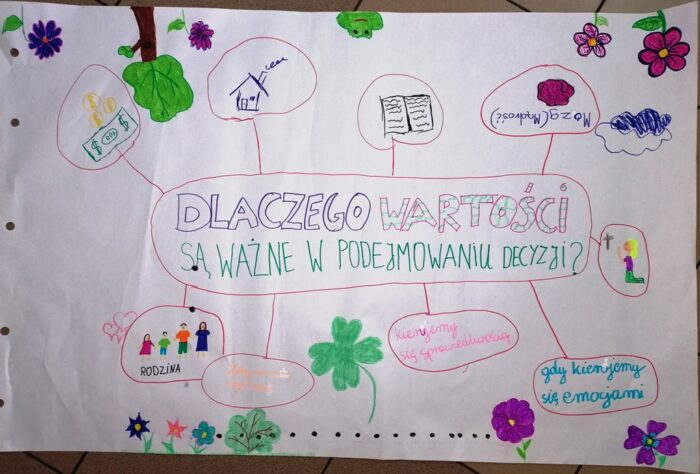 $ 100 $
Mózg (Mądrość)
DLACZEGO WARTOŚCI
SĄ WAŻNE W PODEJMOWANIU DECYZJI?
RODZINA
kierujemy
się sprawiedliwością
gdy kierujemy
się emocjami